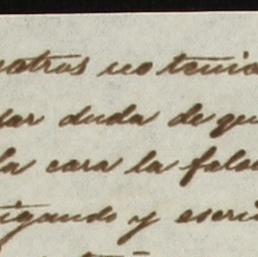 nosotros no tenia
sar duda de que
la cara la false
tigando y escri